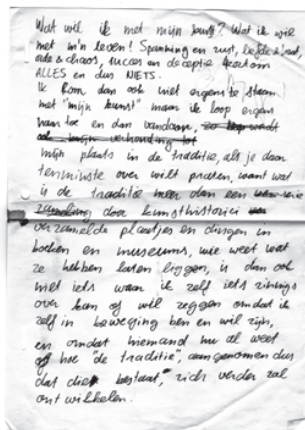 Wat wil ik met mijn kunst? Wat ik wil
met m'n leven! Spanning en rust, liefde & haat,
orde & chaos, succes en deceptie kortom
ALLES en dus NIETS.
Ik kom dan ook niet ergens te staan
met "mijn kunst" maar ik loop ergens
naar toe en dan vandaan,
mijn plaats in de traditie, als je daar
tenminste over wilt praten, want wat
is de traditie meer dan een
door kunsthistorici
verzamelde plaatjes en dingen in
boeken en museums, wie weet wat
ze hebben laten liggen, is dan ook
niet iets waar ik zelf iets zinnigs
over kan of wil zeggen omdat ik
zelf in beweging ben en wil zijn,
en omdat niemand nu al weet
hoe "de traditie", aangenomen dus
dat die bestaat, zich verder zal
ontwikkelen.